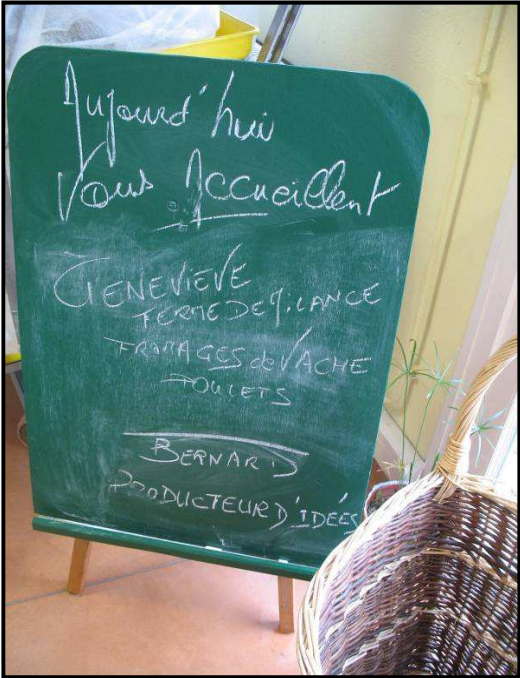 Aujourd'hui
Vous Accueillent
GENEVIEVE
FERME DE
FROMAGES de VACHE
POULETS
BERNARD
PRODUCTEUR D'IDÉES